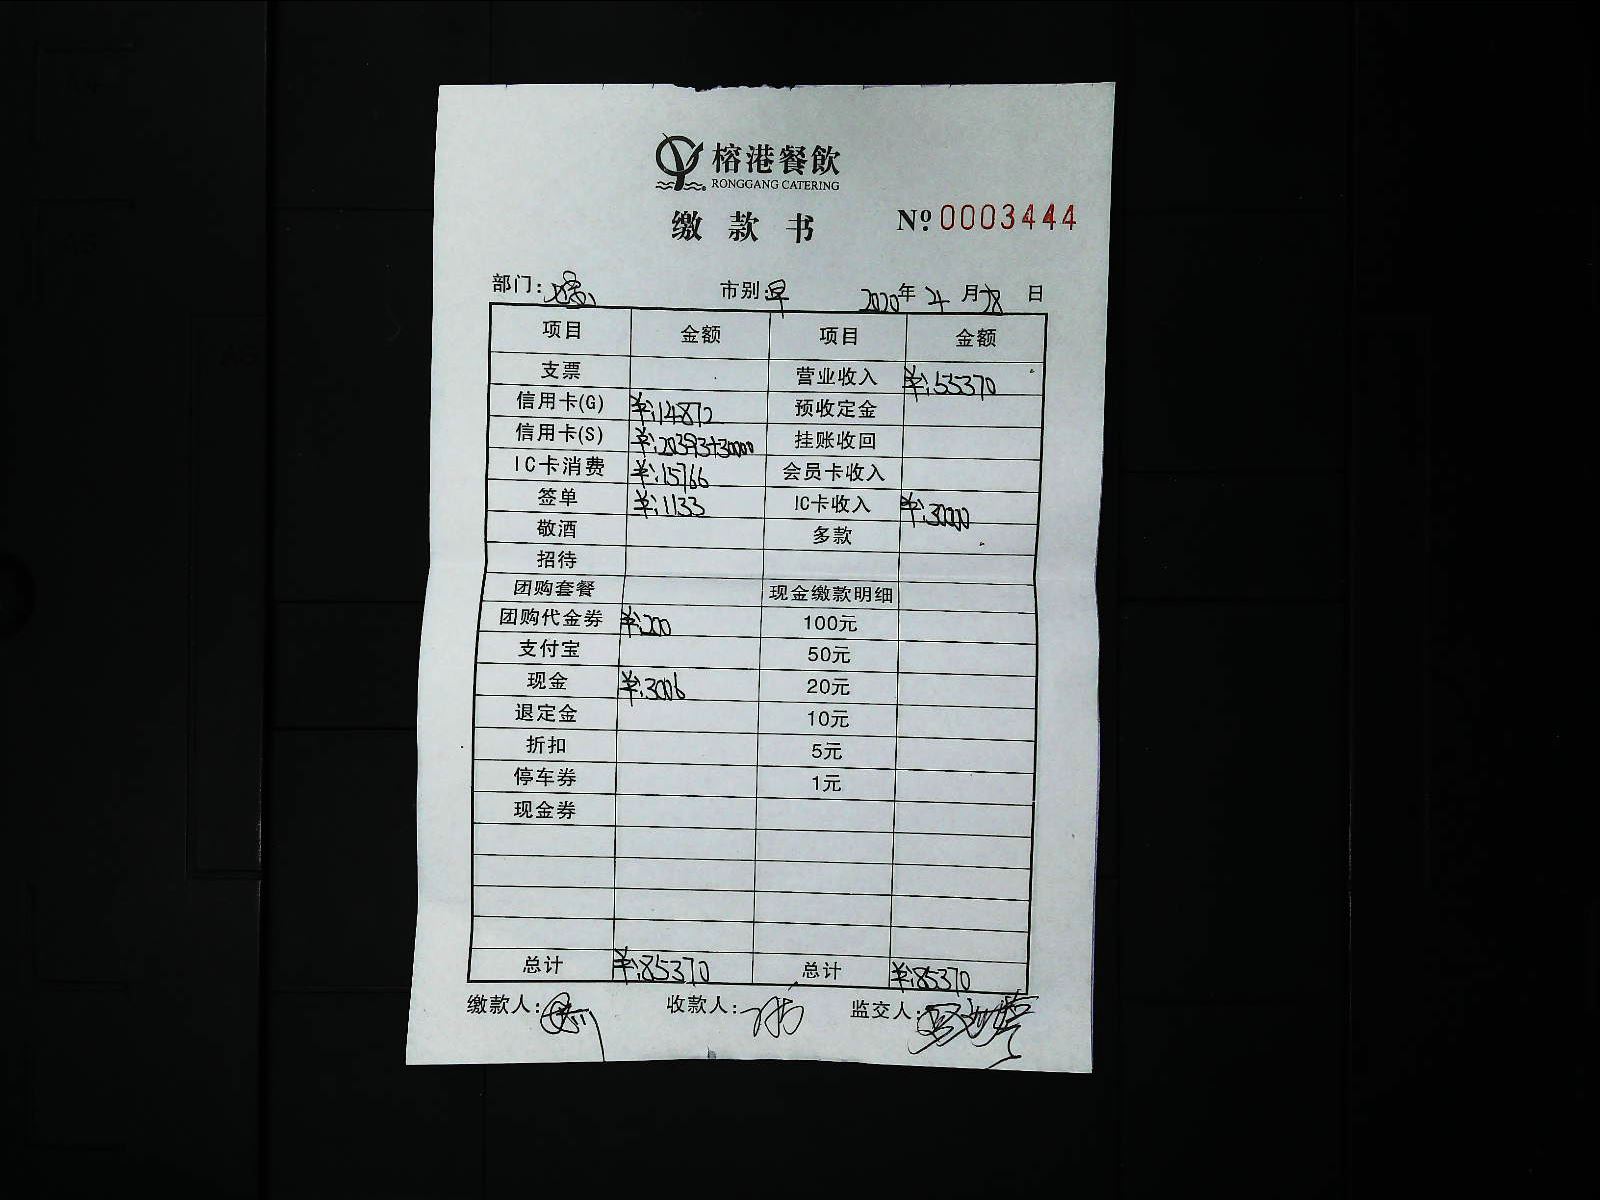 榕港餐飲
RONGGANG CATERING
缴款书 Nº 0003444
部门: 市别:早 2020年4月28日
项目 金额 项目 金额
支票 营业收入 ¥:55370
信用卡(G) ¥:14872 预收定金
信用卡(S) ¥:20393+30000 挂账收回
IC卡消费 ¥:15766 会员卡收入
签单 ¥:1133 IC卡收入 ¥:30000
敬酒 多款
招待
团购套餐 现金缴款明细
团购代金券 ¥:200 100元
支付宝 50元
现金 ¥:3006 20元
退定金 10元
折扣 5元
停车券 1元
现金券
总计 ¥:85370 总计 ¥:85370
缴款人: 收款人: 监交人: